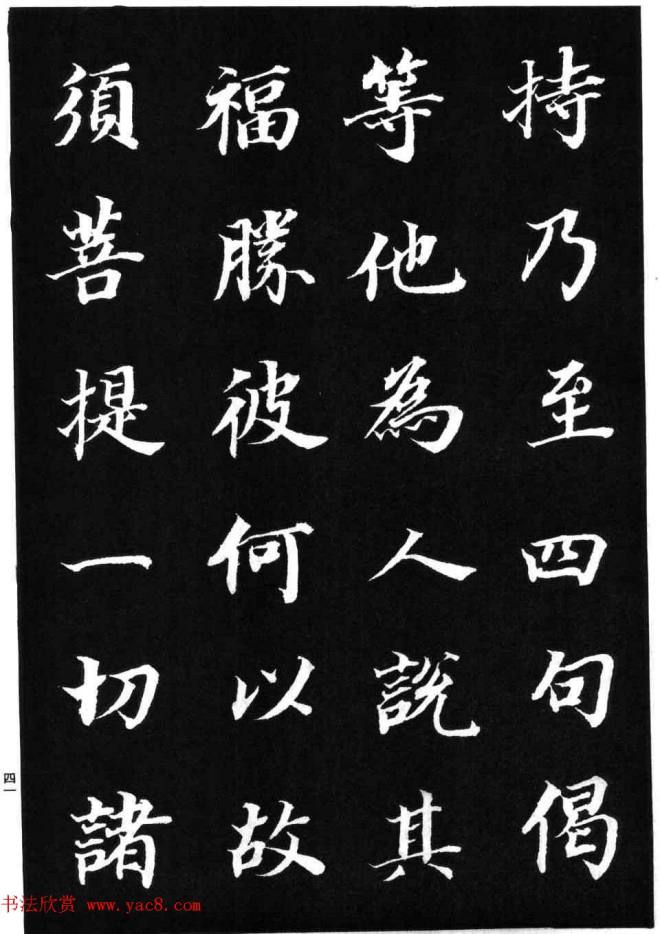 持乃至四句偈
等他為人說其
福勝彼何以故
須菩提一切諸
四一
书法欣赏 www.yac8.com